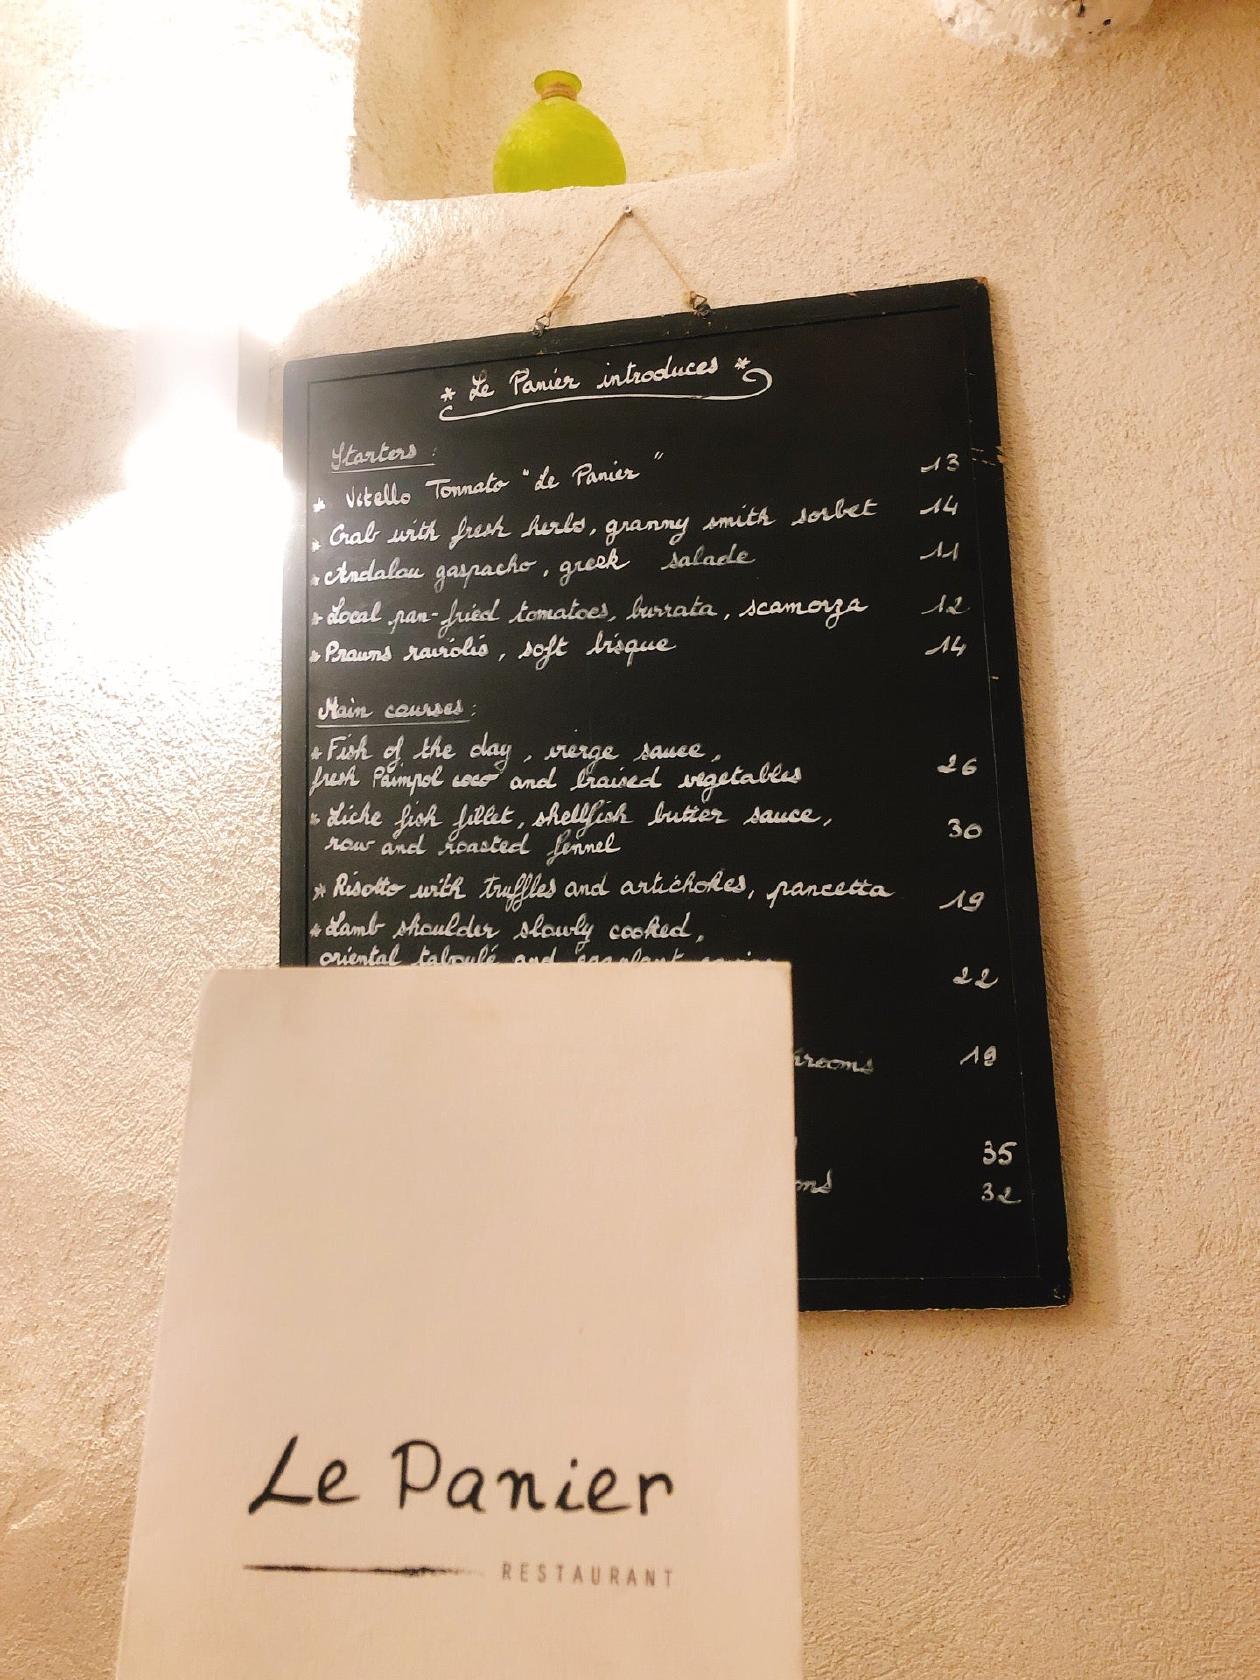 * Le Panier introduces *
Starters :
* Vitello Tonnato "Le Panier" 13
* Crab with fresh herbs, granny smith sorbet 14
* Andalou gaspacho, greek salade 11
* Local pan-fried tomatoes, burrata, scamorza 12
* Prawns raviolis, soft bisque 14
Main courses :
* Fish of the day, vierge sauce,
fresh Paimpol coco and braised vegetables 26
* Liche fish fillet, shellfish butter sauce,
raw and roasted fennel 30
* Risotto with truffles and artichokes, pancetta 19
* Lamb shoulder slowly cooked,
oriental taboulé and eggplant 22
19
35
32
Le Panier
RESTAURANT